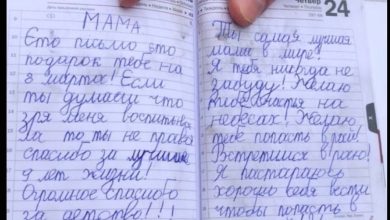 МАМА
Єто письмо это
подарок тебе на
8 марта! Если
ты думаеш что
зря меня воспитывала
Ла то ты не права
спасибо за лучшие
9 лет жизни!
Огромное спасибо
за детство!!!
четверг
24
Ты самая лучшая
мама в мире!
Я тебя никогда не
забуду! Желаю
тебе счастья на
небесах! Желаю
тебе попасть в рай!
Встретимся в раю!
Я постараюсь
хорошо себя вести
чтобы попасть в